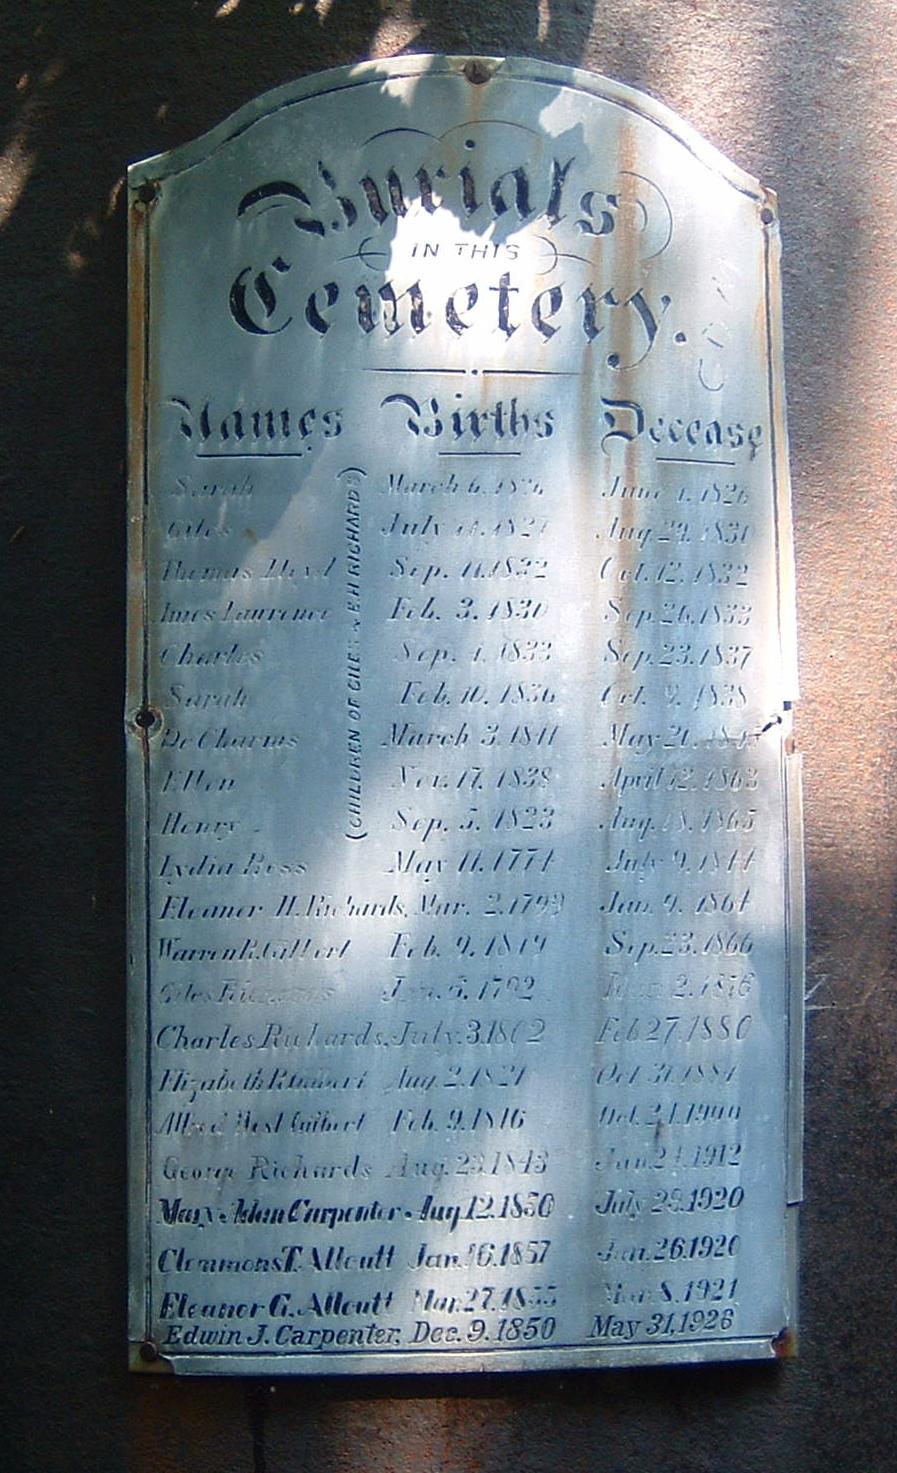 Burials
IN THIS
Cemetery.
Names Births Decease
(CHILDREN OF GILES & E.H RICHARDS)
Sarah March 6. June 1. 1826
Giles July 11. 1827 Aug. 29. 1831
Thomas Sep. 11. 1832 Oct. 12. 1832
Lawrence Feb. 3. 1830 Sep. 26. 1833
Charles Sep. 1. 1833 Sep. 23. 1837
Sarah Feb. 10. 1836 Oct. 9. 1838
De Charms March 3. 1841 May 21.
Ellen Nov. 17. 1838 April 12. 1863
Henry Sep. 5. 1823 Aug. 18. 1865
Lydia Ross May 11. 1774 July 9. 1844
Eleanor H. Richards, Mar. 2. 1799 Jan. 9. 1864
Warren R. Gilbert Feb. 9. 1849 Sep. 23. 1866
Giles Richards Jan. 5. 1792 2. 1876
Charles Richards, July. 3. 1802 Feb 27. 1880
Elizabeth R. Aug. 2. 1821 Oct 31. 1884
Alfred West Gilbert Feb. 9. 1816 Oct. 21. 1900
George Richards Aug. 23. 1843 Jan. 24. 1912
Mary Carpenter. Aug. 12. 1850 July 29. 1920
Clemmons T. Allcutt Jan. 16. 1857 Jan. 26. 1920
Eleanor G. Allcutt Mar. 27. 1855 Mar 8. 1921
Edwin J. Carpenter, Dec. 9. 1850 May 31, 1926